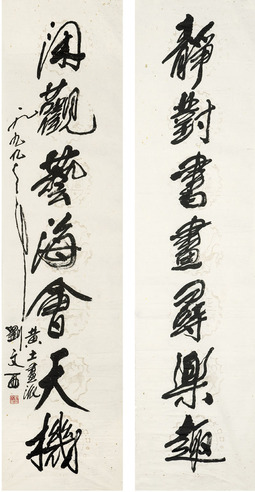 靜對書畫尋樂趣
閑觀藝海會天機
一九九九年
黃土畫派
劉文西